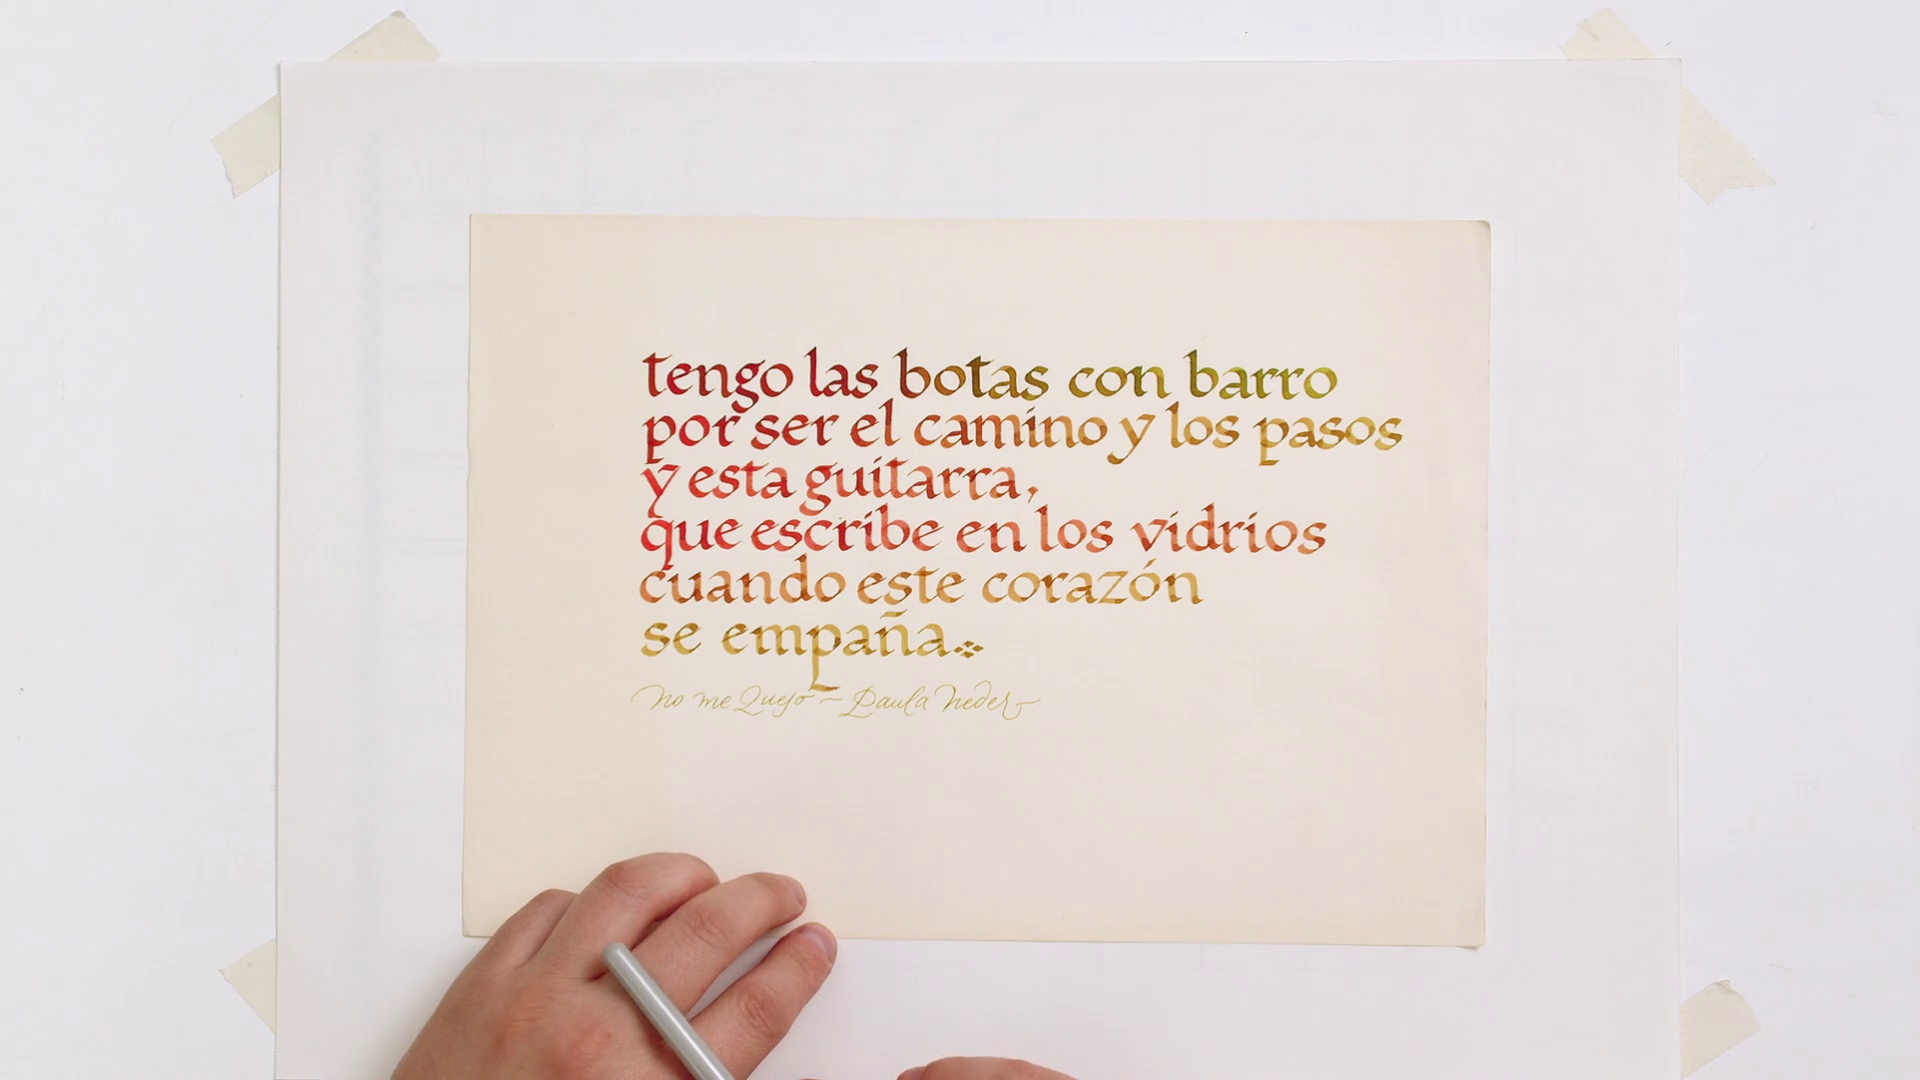 tengo las botas con barro
por ser el camino y los pasos
y esta guitarra,
que escribe en los vidrios
cuando este corazón
se empaña.
No me Quejo ~ Paula Neder